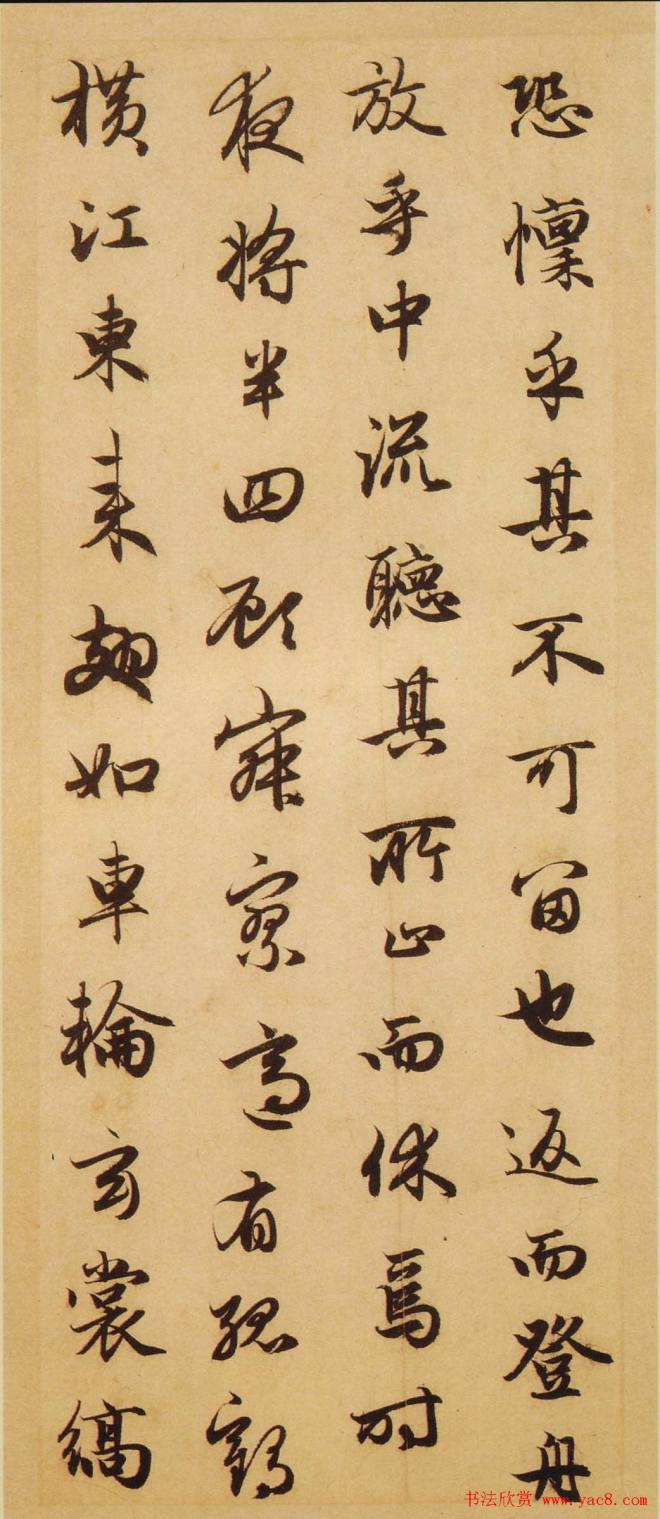 恐懍乎其不可留也返而登舟
放乎中流聽其所止而休焉時
夜將半四顧寂寥適有孤鶴
橫江東來翅如車輪玄裳縞
书法欣赏 www.yac8.com